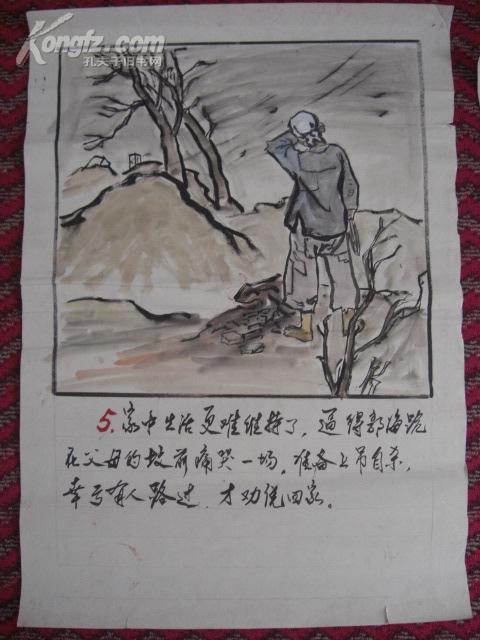 Kongfz.com
孔夫子旧书网
5. 家中生活更难维持了，逼得郭海跑
在父母的坟前痛哭一场，准备上吊自杀，
幸亏有人路过，才劝说回家。